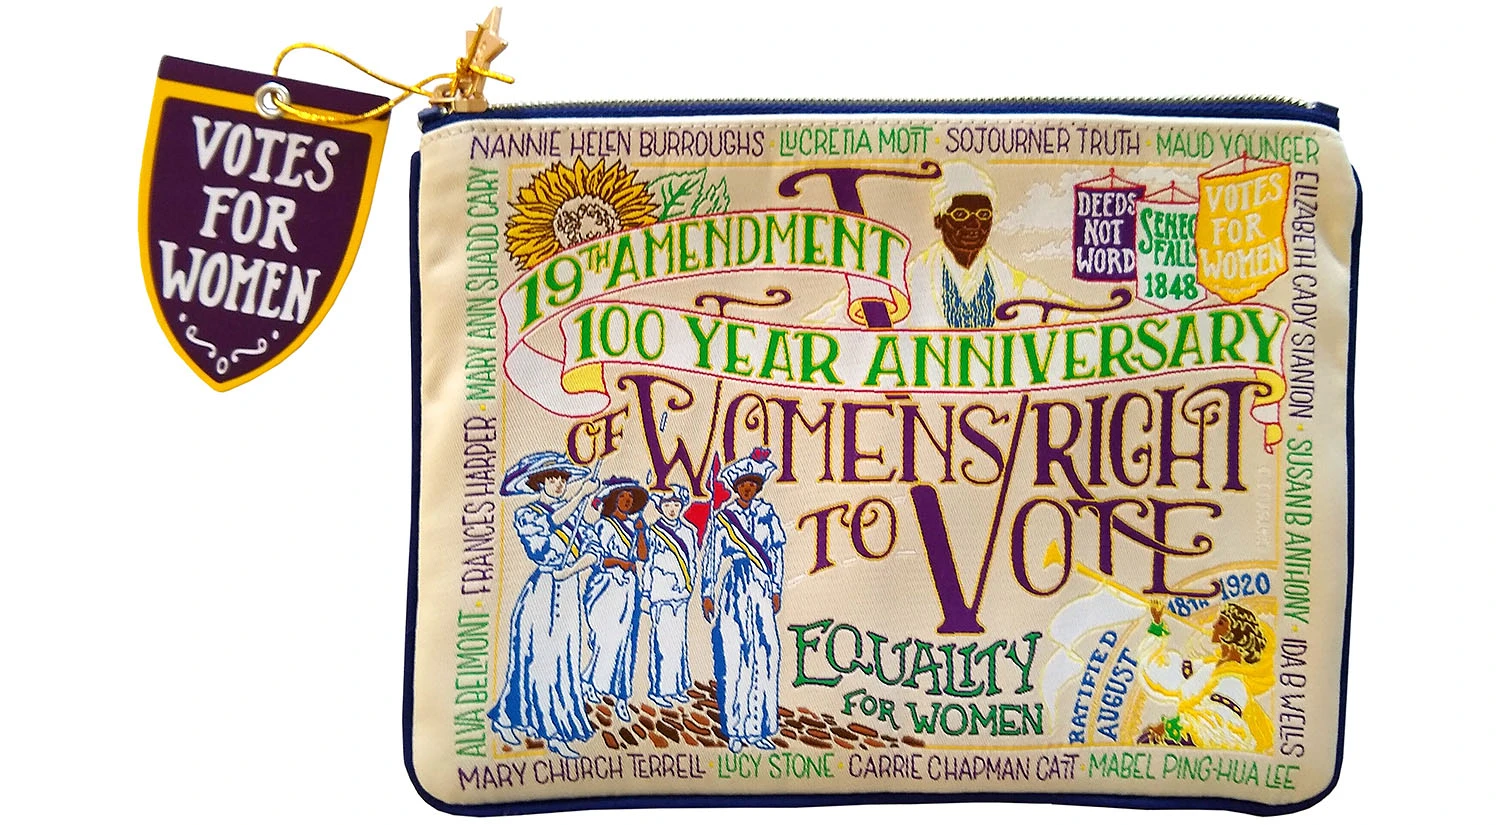 VOTES
FOR
WOMEN
NANNIE HELEN BURROUGHS · LUCRETIA MOTT · SOJOURNER TRUTH · MAUD YOUNGER
ELIZABETH CADY STANTON · SUSAN B ANTHONY · IDA B WELLS
MARY CHURCH TERRELL · LUCY STONE · CARRIE CHAPMAN CATT · MABEL PING-HUA LEE
ALVA BELMONT · FRANCES HARPER · MARY ANN SHADD CARY
19TH AMENDMENT
100 YEAR ANNIVERSARY
OF WOMEN'S RIGHT
TO VOTE
DEEDS
NOT
WORD
SENEC
FALLS
1848
VOTES
FOR
WOMEN
EQUALITY
FOR WOMEN
RATIFIED
AUGUST
18TH 1920